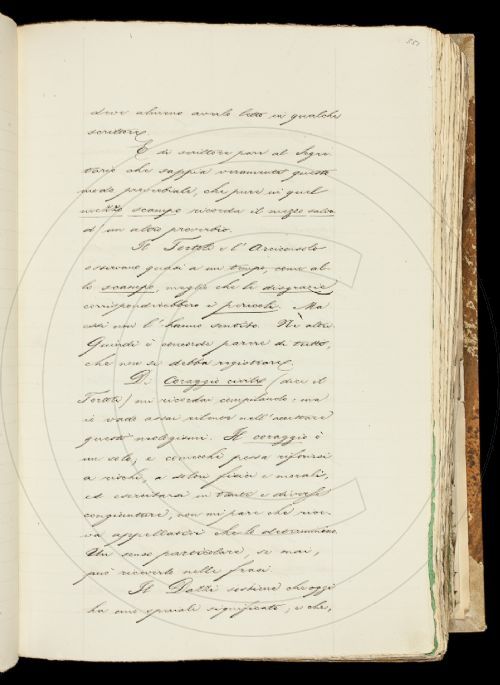 deve almeno averlo letto in qualche
scrittore.
E di scrittore pare al Segre-
tario che sappia veramente questo
modo proverbiale, che pure in quel
mezzo scampo ricorda il mezzo salva
d' un altro proverbio.
Il Tortoli e l' Arciconsolo
osservano quasi a un tempo, come al-
lo scampo, meglio che le disgrazie
corrisponderebbero i pericoli. Ma
essi non l' hanno sentito. Nè altri.
Quindi è concorde parere di tutti,
che non si debba registrare.
Di Coraggio civile (dice il
Tortoli) mi ricordai compilando; ma
io vado assai nell' accettare
questi neologismi. Il coraggio è
un solo, e comecchè possa riferirsi
a rischi, a dolori fisici e morali,
ed esercitarsi in tante e diverse
congiunture, non mi pare che rice-
va appellativi che lo determinino.
Un senso particolare, se mai,
può riceverlo nelle frasi.
Il Dazzi sostiene che oggi
ha uno speciale significato, e che,